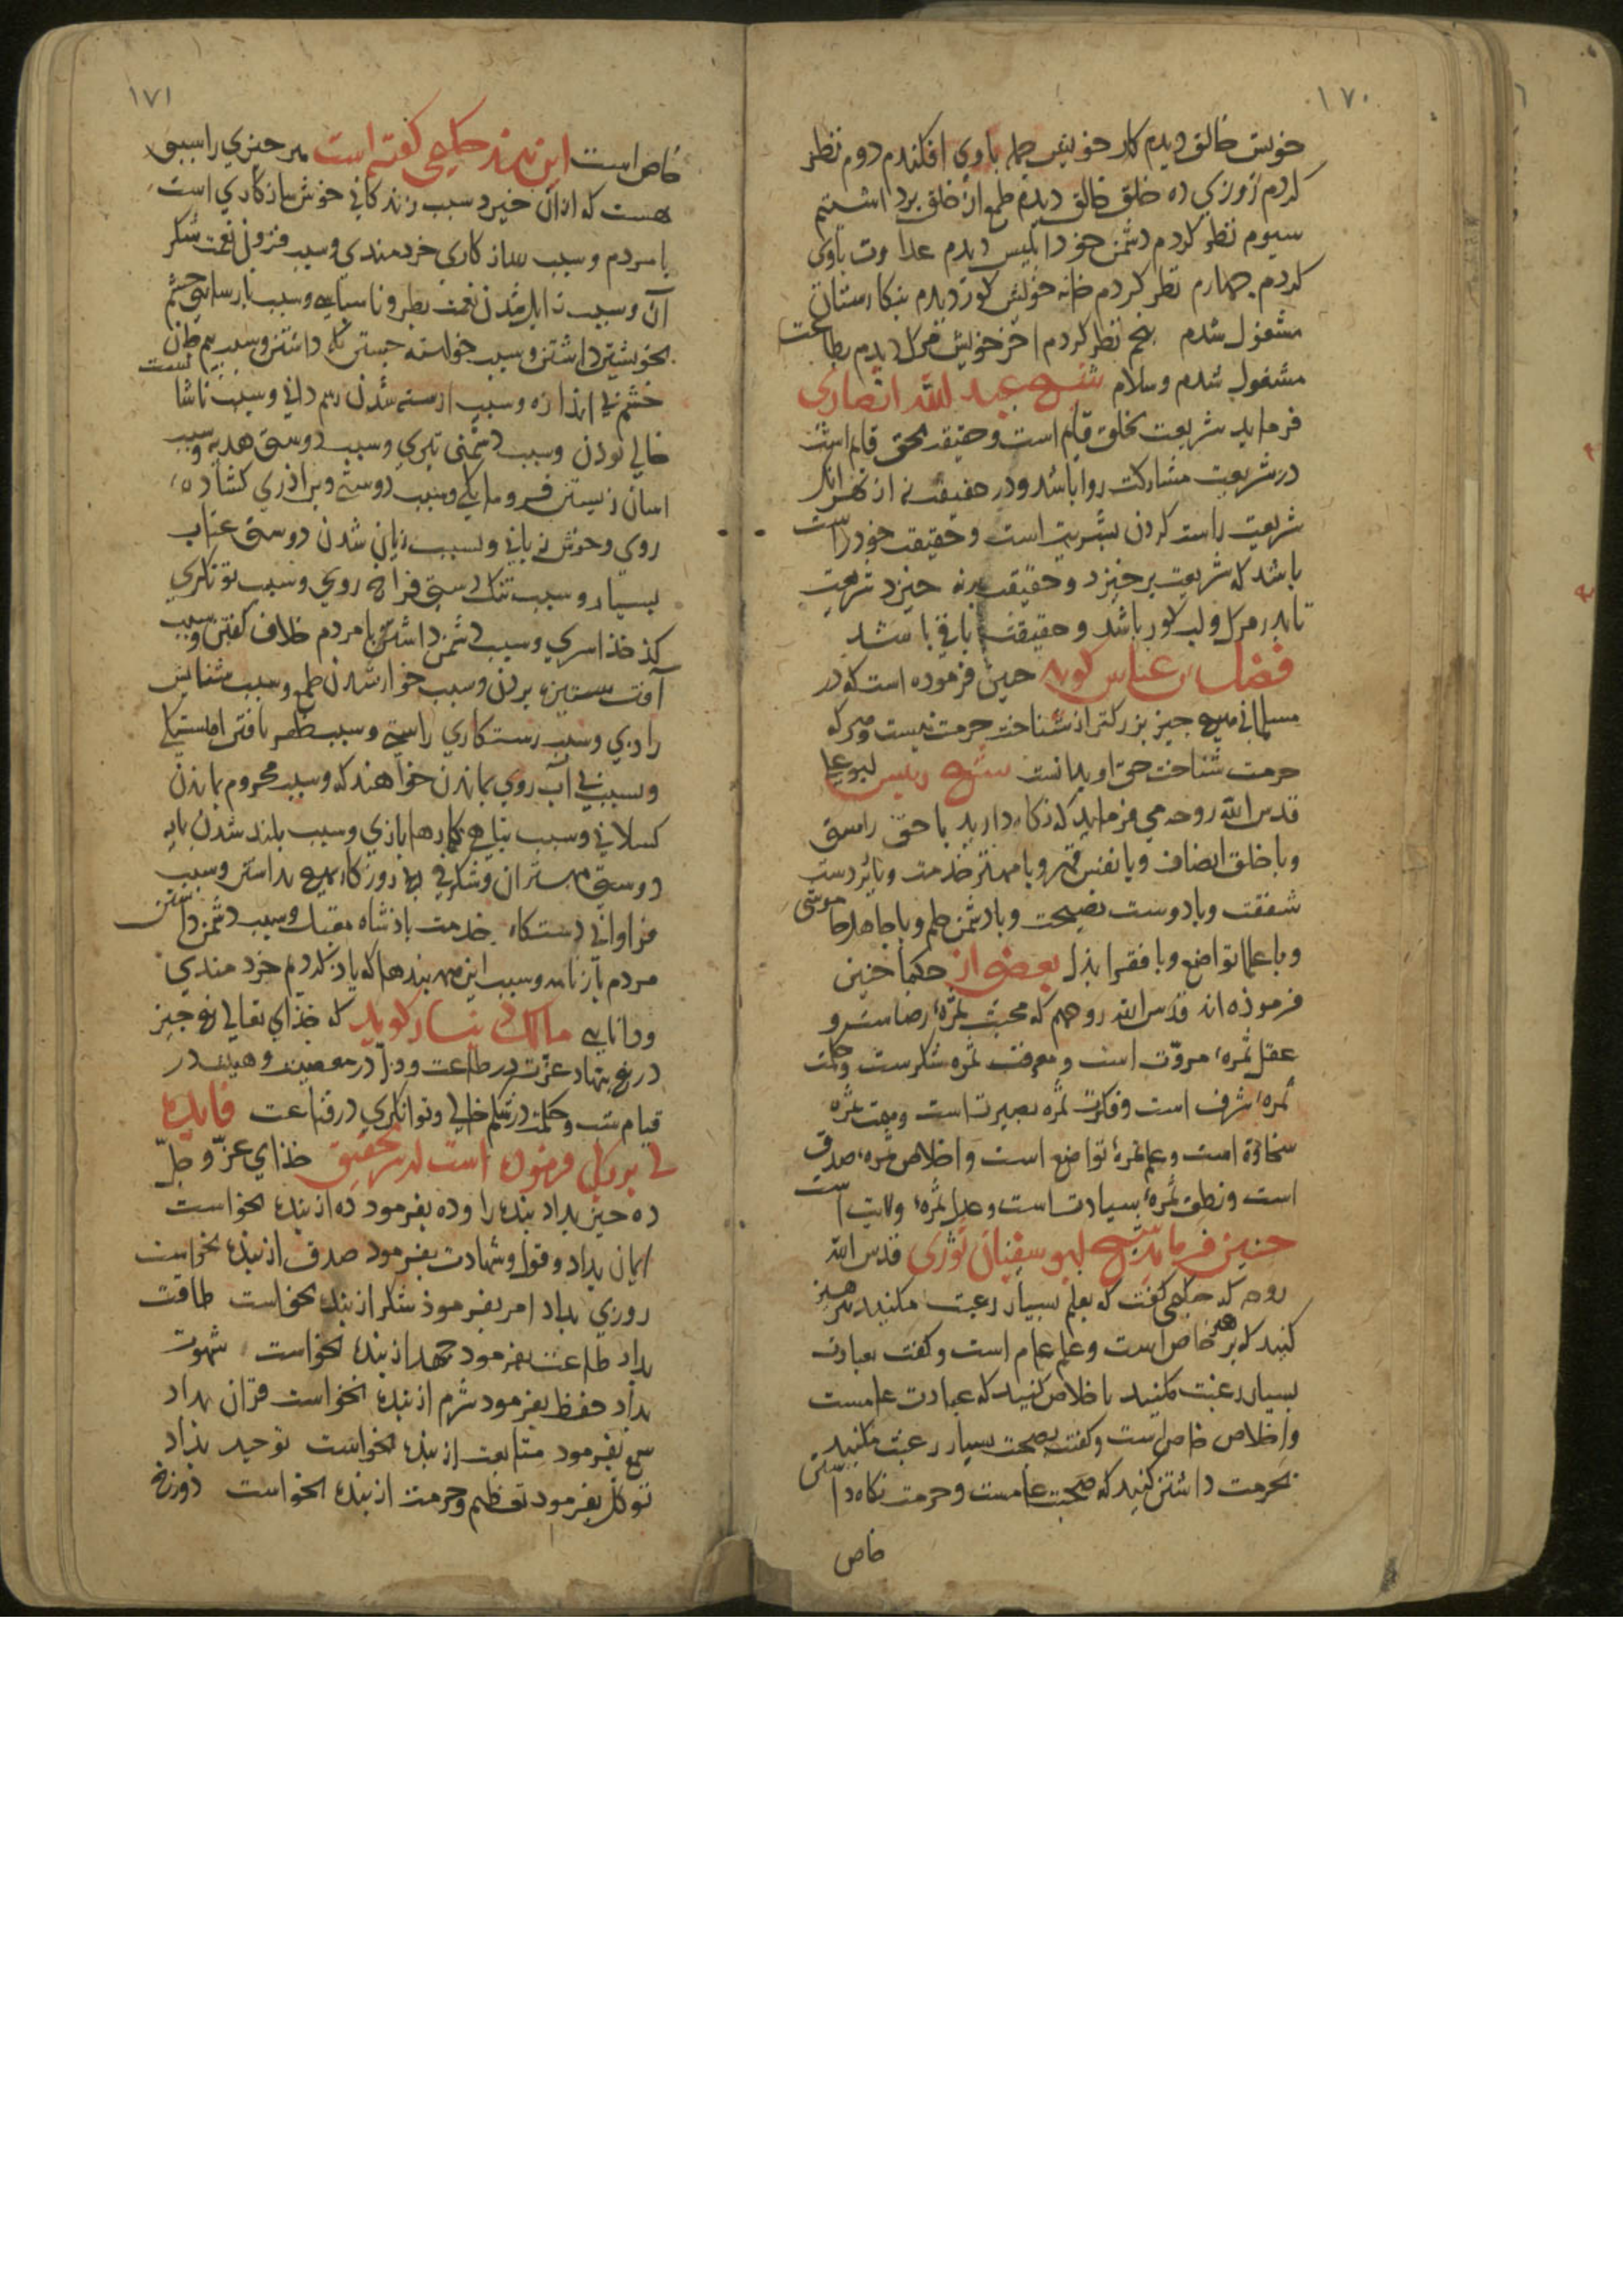 ١٧٠
خویش خالق دیدم کار خویش جمله باوی افکندم دوم نظر
کردم روزی ده خلق خالق دیدم طمع از خلق برداشتم
سیوم نظر کردم دشمن خود ابلیس دیدم عداوت باوی
کردم چهارم نظر کردم خانه خویش کور دیدم بنکارستان
مشغول شدم پنجم نظر کردم اخر خویش مرک دیدم بطاعت
مشغول شدم وسلام شیخ عبد الله انصاری
فرماید شریعت بخلق قایم است وحقیقت بحق قایم است
در شریعت مشارکت روا باشد ودر حقیقت نه از بهر انک
شریعت راست کردن بشریت است وحقیقت خود راست
باشد که شریعت برخیزد وحقیقت برنه خیزد شریعت
تا بدر مرک ولب کور باشد وحقیقت باقی باشد
فضل بن عباس کوید چنین فرموده است که در
مسلمانی هیچ چیز بزرکتر از شناخت حرمت نیست وهرکه
حرمت شناخت حق او بدانست شیخ رییس ابوعلی
قدس الله روحه می فرماید که نکاه دارید با حق راستی
وبا خلق انصاف وبا نفس قهر وبا مهتر خدمت وبا زیردست
شفقت وبا دوست نصیحت وبا دشمن حلم وبا جاهل خاموشی
وبا علما تواضع وبا فقرا بذل بعضی از حکما چنین
فرموذه اند قدس الله روحهم که محبت ثمرهٔ رضاست و
عقل ثمرهٔ مروّت است ومعرفت ثمره شکرست وحکمت
ثمرهٔ شرف است وفکرت ثمره بصیرت است وهمت ثمره
سخاوة است وعلم ثمرهٔ تواضع است واخلاص ثمرهٔ صدق
است ونطق ثمرهٔ سیادت است وعدل ثمرهٔ ولایت است
چنین فرماید شیخ ابو سفیان ثوری قدس الله
روحه که حکیمی کفت که بعلم بسیار رغبت مکنید بهر هنر
کنید که هنر خاص است وعلم عام است وکفت بعبادت
بسیار رغبت مکنید باخلاص کنید که عبادت عامست
واخلاص خاص است وکفت بصحبت بسیار رغبت مکنید
بحرمت داشتن کنید که صحبت عامست وحرمت نکاه داشتن
خاص
١٧١
خاص است این پند حکیمی کفته است هر چیزی را سببی
هست که از آن خیزد سبب زندکانی خوش سازکاری است
با مردم وسبب سازکاری خردمندی وسبب فزونی نعمت شکر
آن وسبب زایل شدن نعمت بطر وناسپاسی وسبب پارسایی چشم
بخویشتن داشتن وسبب خواسته جستن نکه داشتن وسبب بیم ظن
خشم بی اندازه وسبب ارسته شدن رسم دانی وسبب ناشایست
خالی بودن وسبب دشمنی تیری وسبب دوستی هدیه وسبب
اسان زیستن فرومایکی وسبب دوستی وبراذری کشاده
روی وخوش زبانی وسبب زیانی شدن دوستی عتاب
بسیار وسبب تنک دستی فراخ روی وسبب توانکری
کذخذاسری وسبب دشمن داشتن با مردم خلاف کفتن وسبب
آفت ستیزه بردن وسبب خوار شدن طمع وسبب ستایش
رادی وسبب رستکاری راستی وسبب ظفر یافتن اهستکی
وسبب بی آب روی بماندن خواهندکی وسبب محروم ماندن
کسلانی وسبب تباهی کارها بازی وسبب بلند شدن پایه
دوستی مهتران
فراوانی دستکاه خدمت باذشاه مقبل وسبب دشمن داشتن
مردم بازنامه وسبب این همه پندها که یاذ کردم خردمندی
ودانایی مالک دینار کوید که خذای تعالی پنج چیز
در پنج بنهاد عزّت در طاعت وذلّ در معصیت وهیبت در
قیام شب وحکمت در شکم خالی وتوانکری در قناعت فایده
خذای عزّ وجلّ
ده چیز بداد بنده را وده بفرمود ده از بنده بخواست
ایمان بداد وقول وشهادت بفرمود صدق از بنده بخواست
روزی بداد امر بفرموذ شکر از بنده بخواست طاقت
بداد طاعت بفرمود جهد از بنده بخواست شهوت
بداد حفظ بفرمود شرم از بنده بخواست قرآن بداد
سمع بفرمود متابعت از بنده بخواست توحید بداد
توکل بفرمود تعظیم وحرمت از بنده بخواست دوزخ